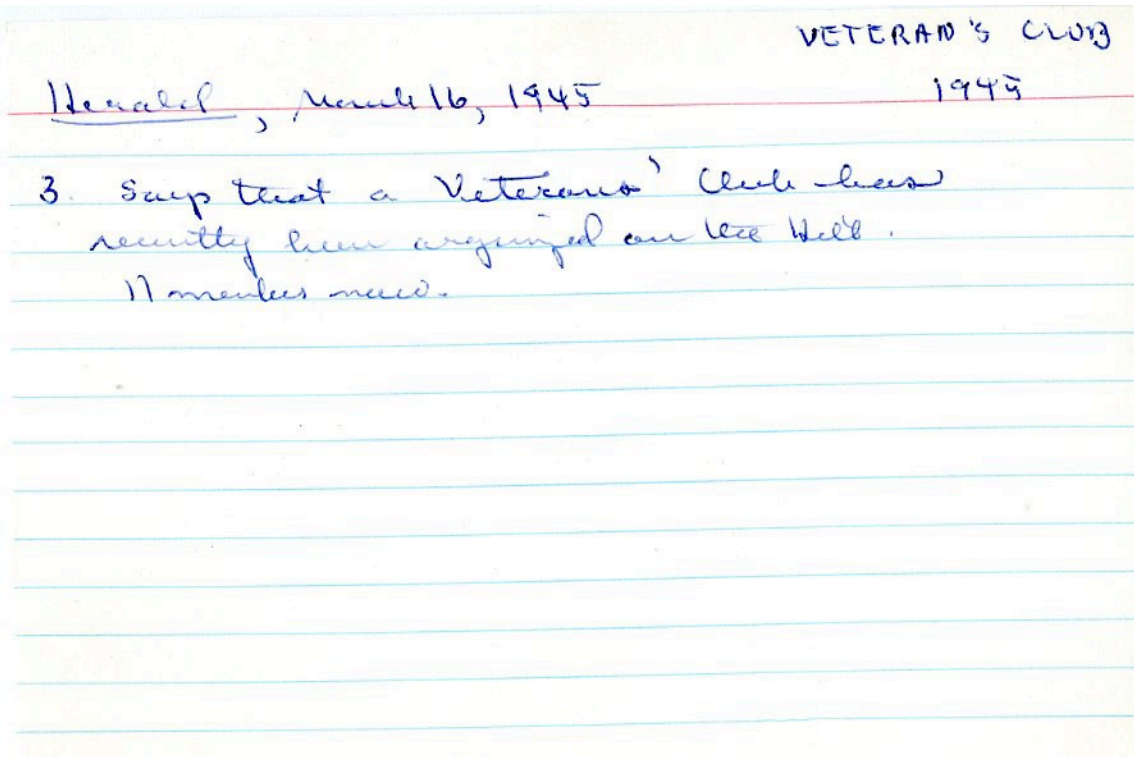 VETERAN'S CLUB
Herald, March 16, 1945 1945
3. Says that a Veterans' Club has
recently been organized on the Hill.
17 members now.